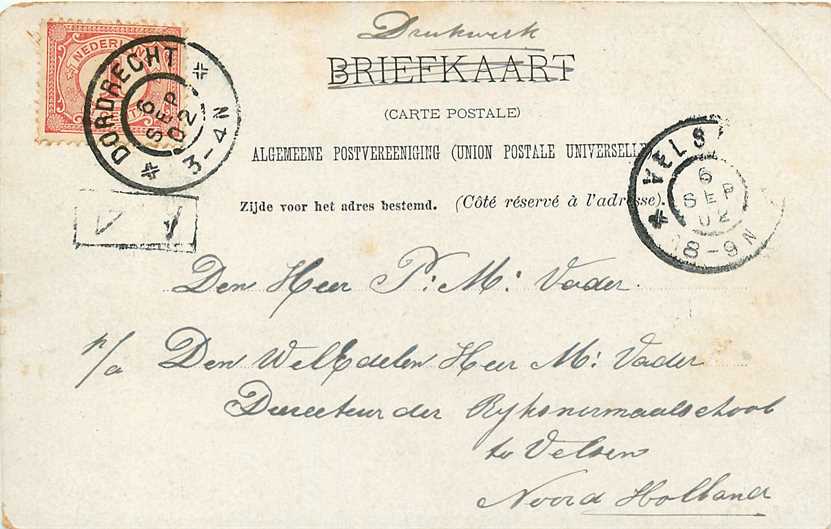 Drukwerk
BRIEFKAART
(CARTE POSTALE)
ALGEMEENE POSTVEREENIGING (UNION POSTALE UNIVERSELLE
Zijde voor het adres bestemd. (Côté réservé à l'adresse).
NEDER
DORDRECHT
6
SEP
02
3-4N
VELS
6
SEP
02
8-9N
Den Heer P: M: Vader.
p/a Den WelEdelen Heer M: Vader
Directeur der Ryksnormaalschool
te Velsen
Noord Holland